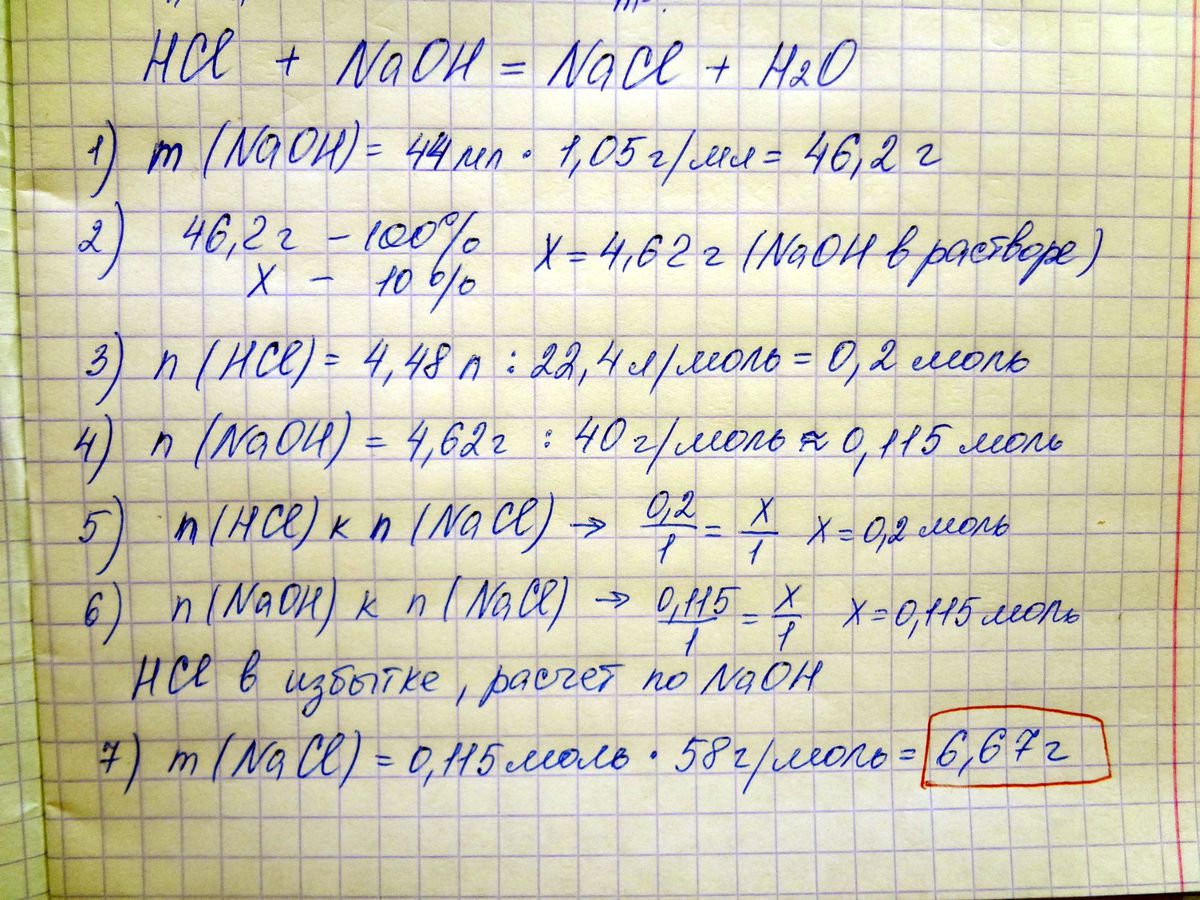 HCl + NaOH = NaCl + H2O
1) m (NaOH) = 44 мл · 1,05 г/мл = 46,2 г
2) 46,2 г – 100% X = 4,62 г (NaOH в растворе)
X – 10%
3) n (HCl) = 4,48 л : 22,4 л/моль = 0,2 моль
4) n (NaOH) = 4,62 г : 40 г/моль ≈ 0,115 моль
5) n (HCl) к n (NaCl) → 0,2/1 = X/1 X = 0,2 моль
6) n (NaOH) к n (NaCl) → 0,115/1 = X/1 X = 0,115 моль
HCl в избытке, расчет по NaOH
7) m (NaCl) = 0,115 моль · 58 г/моль = 6,67 г